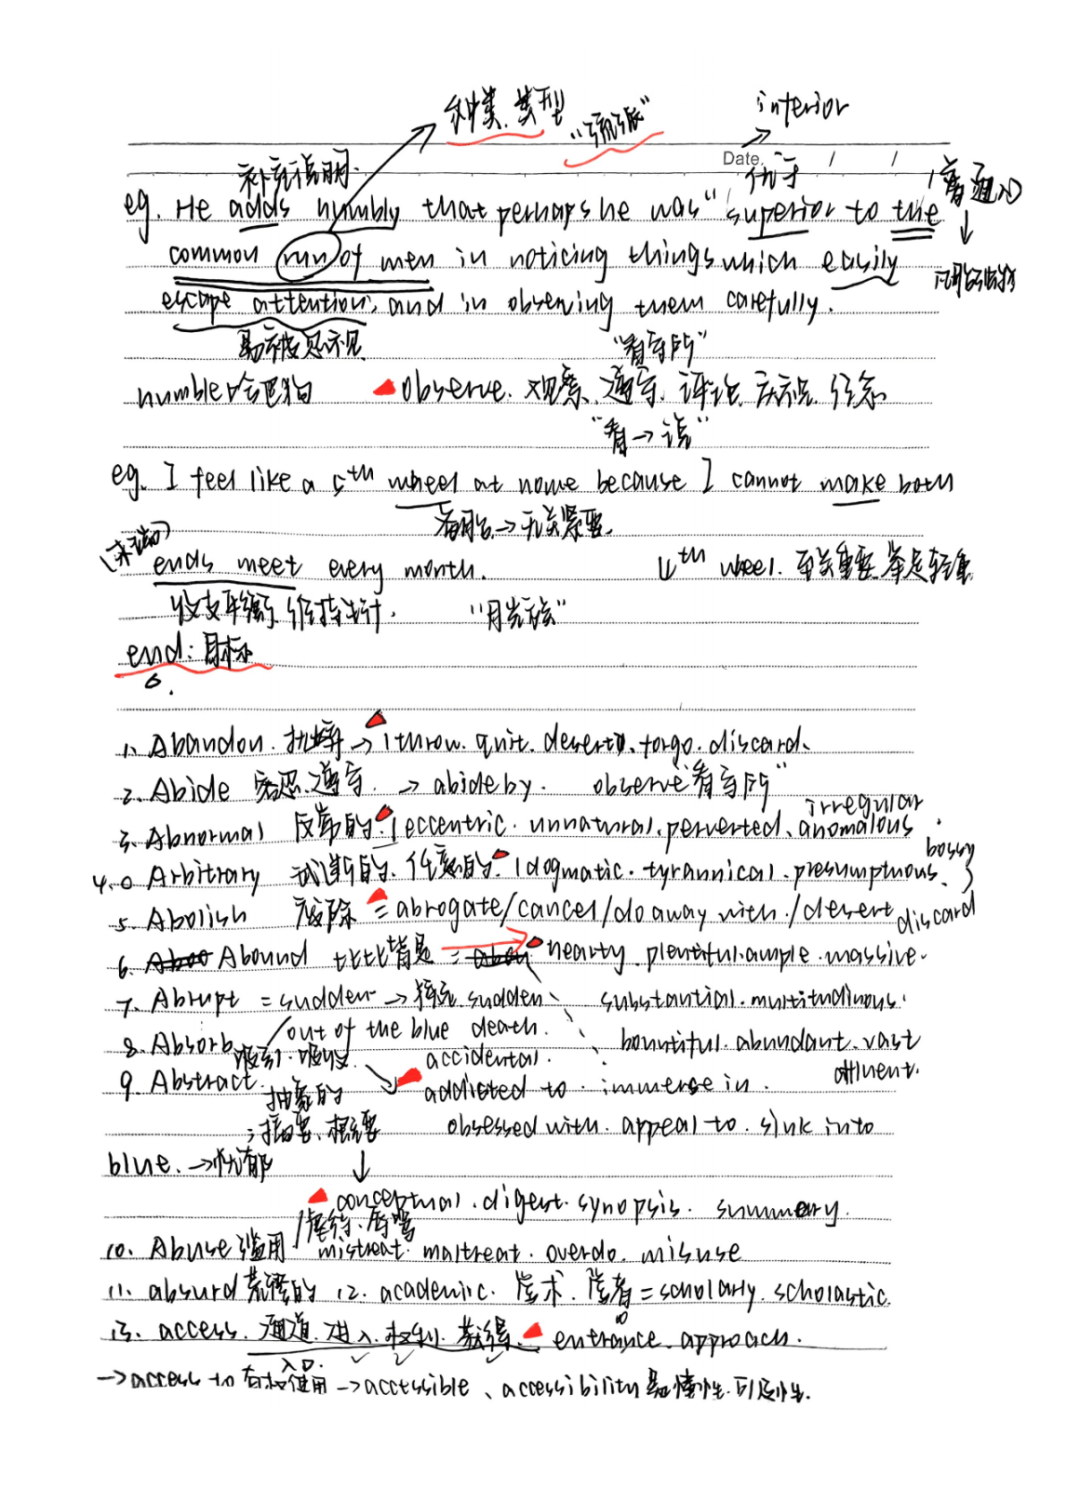 种类.类型 interior
Date. / /
补充说明. 优于 普通人
eg. He adds humbly that perhaps he was "superior to the
common run of men in noticing things which easily
escape attention, and in observing them carefully.
易被忽视 "看守所"
humble 哈巴狗 observe. 观察、遵守、评论、庆祝.
"看→说"
eg. I feel like a 5th wheel at home because I cannot make both
备胎→无关紧要.
ends meet every month. 4th wheel. 至关重要.举足轻重
收支平衡.维持生计. "月光族"
end: 目标
1. Abandon. 抛弃→ throw. quit. desert. forgo. discard.
2. Abide 容忍.遵守. → abide by. observe "看守所"
irregular
3. Abnormal 反常的. eccentric. unnatural. perverted. anomalous
bossy
4. Arbitrary 武断的.任意的. dogmatic. tyrannical. presumptuous.
5. Abolish 废除 = abrogate/cancel/do away with./desert discard
6. Abound 比比皆是 = hearty. plentiful. ample. massive.
7. Abrupt = sudden → 猝死 sudden substantial. multitudinous.
/out of the blue death. bountiful. abundant. vast
8. Absorb 吸引.吸收 accidental. affluent.
9. Abstract. 抽象的 addicted to. immerse in.
;摘要、概要 obsessed with. appeal to. sink into
blue. →忧郁
conceptual. digest. synopsis. summery.
虐待.辱骂
10. Abuse 滥用 mistreat. maltreat. overdo. misuse
11. absurd 荒谬的 12. academic. 学术.学者 = scholarly. scholastic.
13. access. 通道.进入.权利.获得. entrance. approach.
入口.
→access to 有权使用 →accessible 、accessibility 易懂性.可及性.